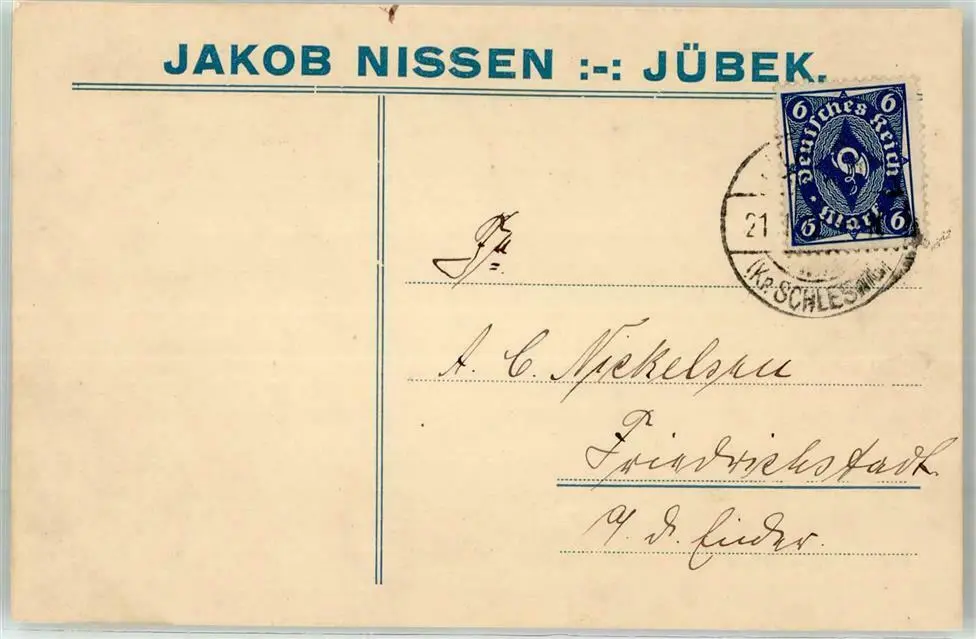 JAKOB NISSEN :-: JÜBEK.
6 6
Deutsches Reich
Mark
6 6
21
(Kr. SCHLESWIG)
Fa
A. C. Nickelsen
Friedrichstadt
a/ d. Eider.